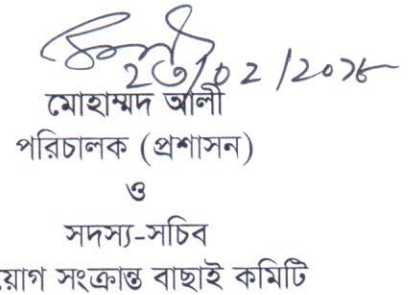 ২৩/০২/২০২৮
মোহাম্মদ আলী
পরিচালক (প্রশাসন)
ও
সদস্য-সচিব
য়োগ সংক্রান্ত বাছাই কমিটি